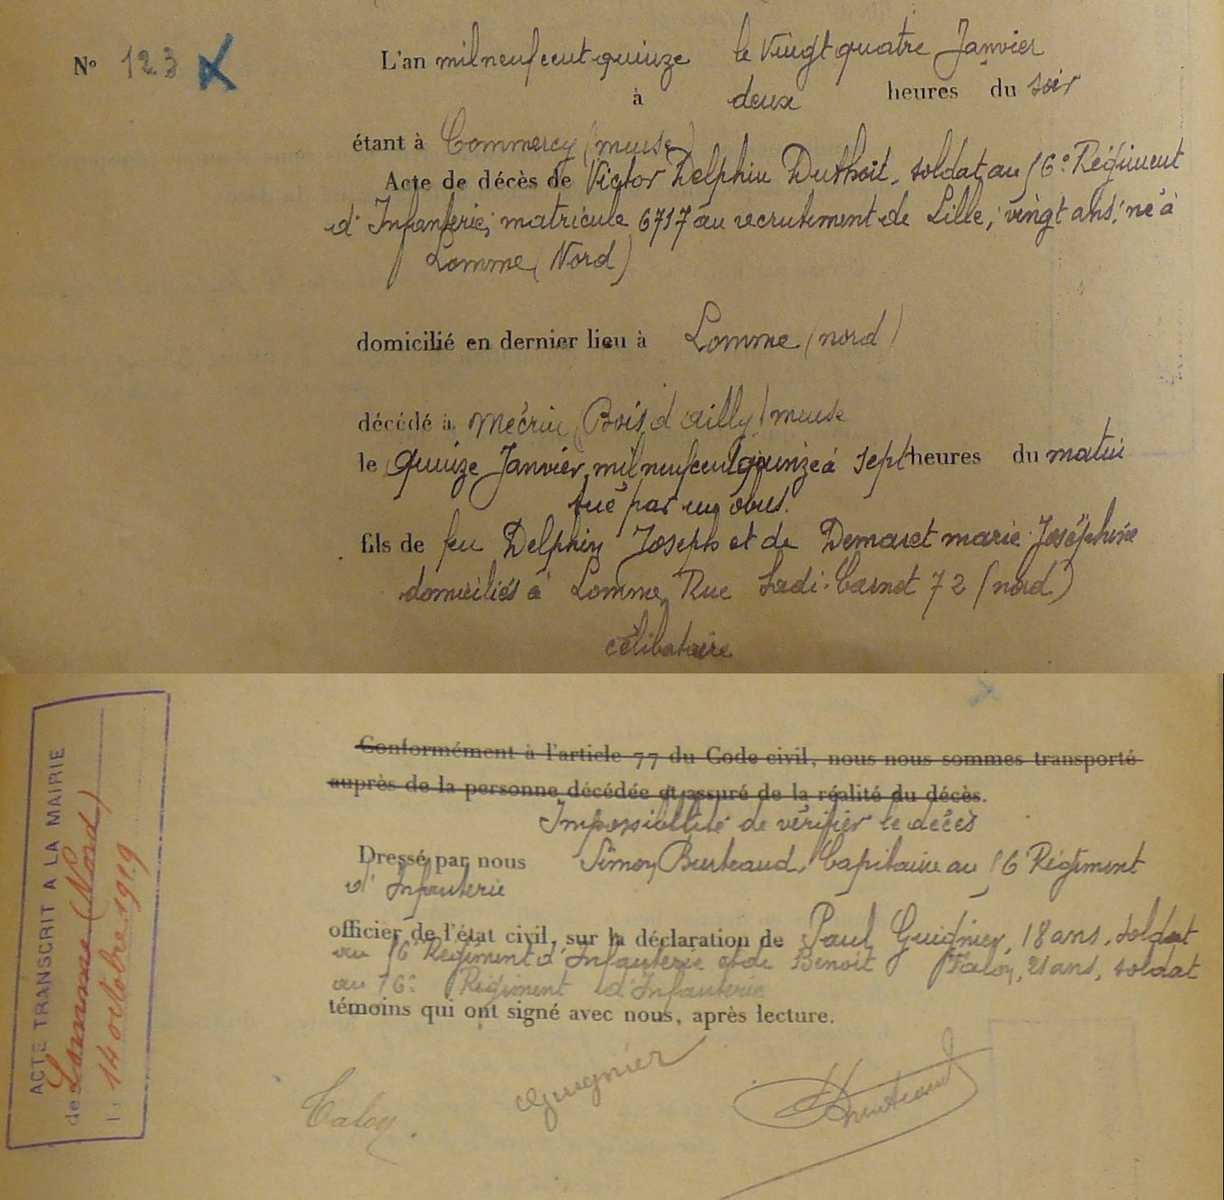 N° 123
L'an mil neuf cent quinze le vingt quatre Janvier
à deux heures du soir
étant à Commercy (meuse)
Acte de décès de Victor Delphin Duthoit, soldat au 16e Régiment
d'Infanterie, matricule 6717 au recrutement de Lille, vingt ans, né à
Lomme (Nord)
domicilié en dernier lieu à Lomme (nord)
décédé à Mécrin (Bois d'ailly) meuse
le quinze Janvier mil neuf cent quinze à sept heures du matin
tué par un obus.
fils de feu Delphin Joseph et de Demaret marie Joséphine
domiciliés à Lomme, Rue Sadi-Carnot 72 (nord)
célibataire
Conformément à l'article 77 du Code civil, nous nous sommes transporté
auprès de la personne décédée et assuré de la réalité du décès.
Impossibilité de vérifier le décès
Dressé par nous Simon Capitaine au 16 Régiment
d'Infanterie
officier de l'état civil, sur la déclaration de Paul Guignier, 18 ans, soldat
au 16e Régiment d'Infanterie et de Benoit Taloy, 21 ans, soldat
au 16e Régiment d'Infanterie
témoins qui ont signé avec nous, après lecture.
Taloy. Guignier
ACTE TRANSCRIT A LA MAIRIE
de Lomme (Nord)
le 14 octobre 1919